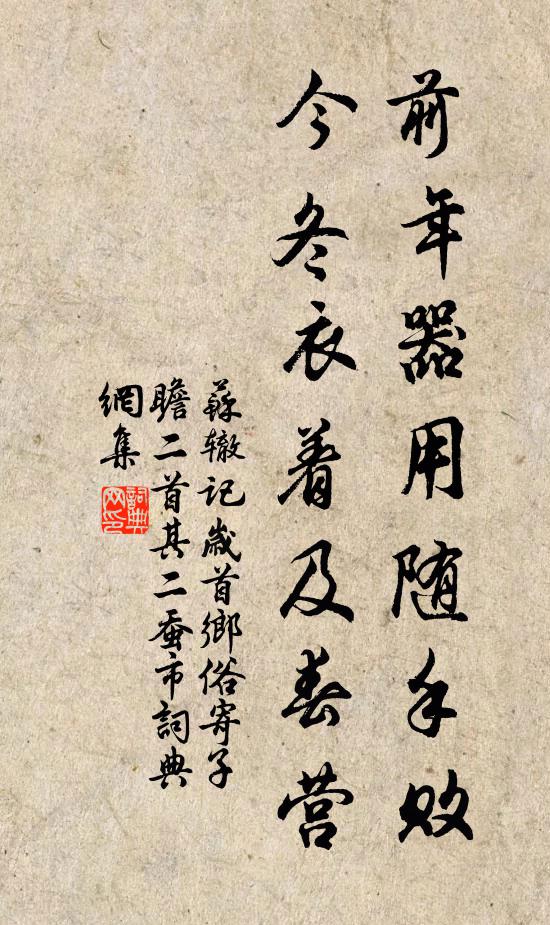 前年器用随手败
今冬衣着及春营
蘇辙記歲首鄉俗寄子
瞻二首其二蚕市詞典
網集
詞典
网印